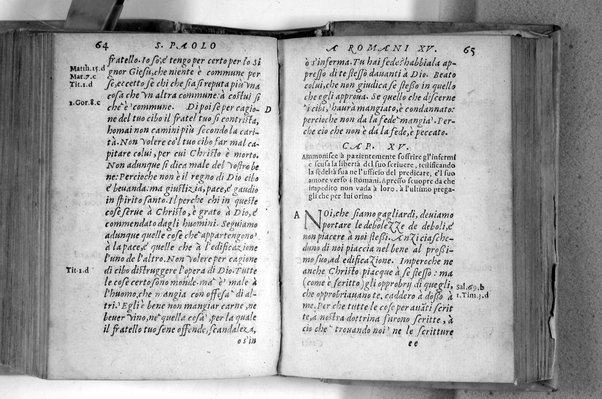 64 S. PAOLO
fratello. Io so, e tengo per certo per lo Si
Matth.15.d
gnor Giesu, che niente è commune per
Mar.7.c
se, eccetto se chi che sia si reputa più una
Tit.1.d
cosa che un altra commune: à costui si
1.Cor.8.c
che è commune. Di poi se per cagio
D
ne del tuo cibo il fratel tuo si contrista,
homai non camini più secondo la cari
tà. Non volere col tuo cibo far mal ca
pitare colui, per cui Christo è morto.
Non adunque si dica male del vostro be
ne: Percioche non è il regno di Dio cibo
e bevanda: ma giustitia, pace, e gaudio
in spirito santo. Il perche chi in queste
cose serue à Christo, è grato à Dio, e
commendato dagli huomini. Seguiamo
adunque quelle cose che appartengono
à la pace, e quelle che à l'edificazione
l'uno de l'altro. Non volere per cagione
Tit.1.d
di cibo distruggere l'opera di Dio: Tutte
le cose certo sono monde: ma è male à
l'huomo, che mangia con offesa di al-
tri. Egli è bene non mangiar carne, ne
bever vino, ne quella cosa, per la quale
il fratello tuo sene offende, scandaleza,
o s in
A ROMANI XV. 65
ò s'inferma. Tu hai fede? habbila ap
presso di te stesso dauanti à Dio. Beato
colui, che non giudica se stesso in quello
che egli approua. Se quello che discerne
i cibi, haurà mangiato, è condannato:
percioche non da la fede mangia. Per-
che ciò che non è da la fede, è peccato.
CAP. XV.
Ammonisce à patientemente soffrire gl'infermi
e scusa la libertà del suo scriuere, testificando
la fedeltà sua ne l'ufficio del predicare, e'l suo
amore verso i Romani. Apresso scuopre da che
impedito non vada à loro. à l'ultimo prega-
gli che per lui orino
A
NOi, che siamo gagliardi, deuiamo
portare le debolezze de deboli, e
non piacere à noi stessi. Anzi ciasche-
duno di noi piaccia nel bene al prossi-
mo suo, ad edificazione. Imperoche ne
anche Christo piacque à se stesso: ma
(come è scritto) gli opprobrij di quegli,
Sal.69.b
che opprobriauano te, caddero à dosso à
1.Tim.3.d
me. Per che tutte le cose per auāti scrit
te, à nostra dottrina surono scritte, à
cio che trouando noi ne le scritture
e e